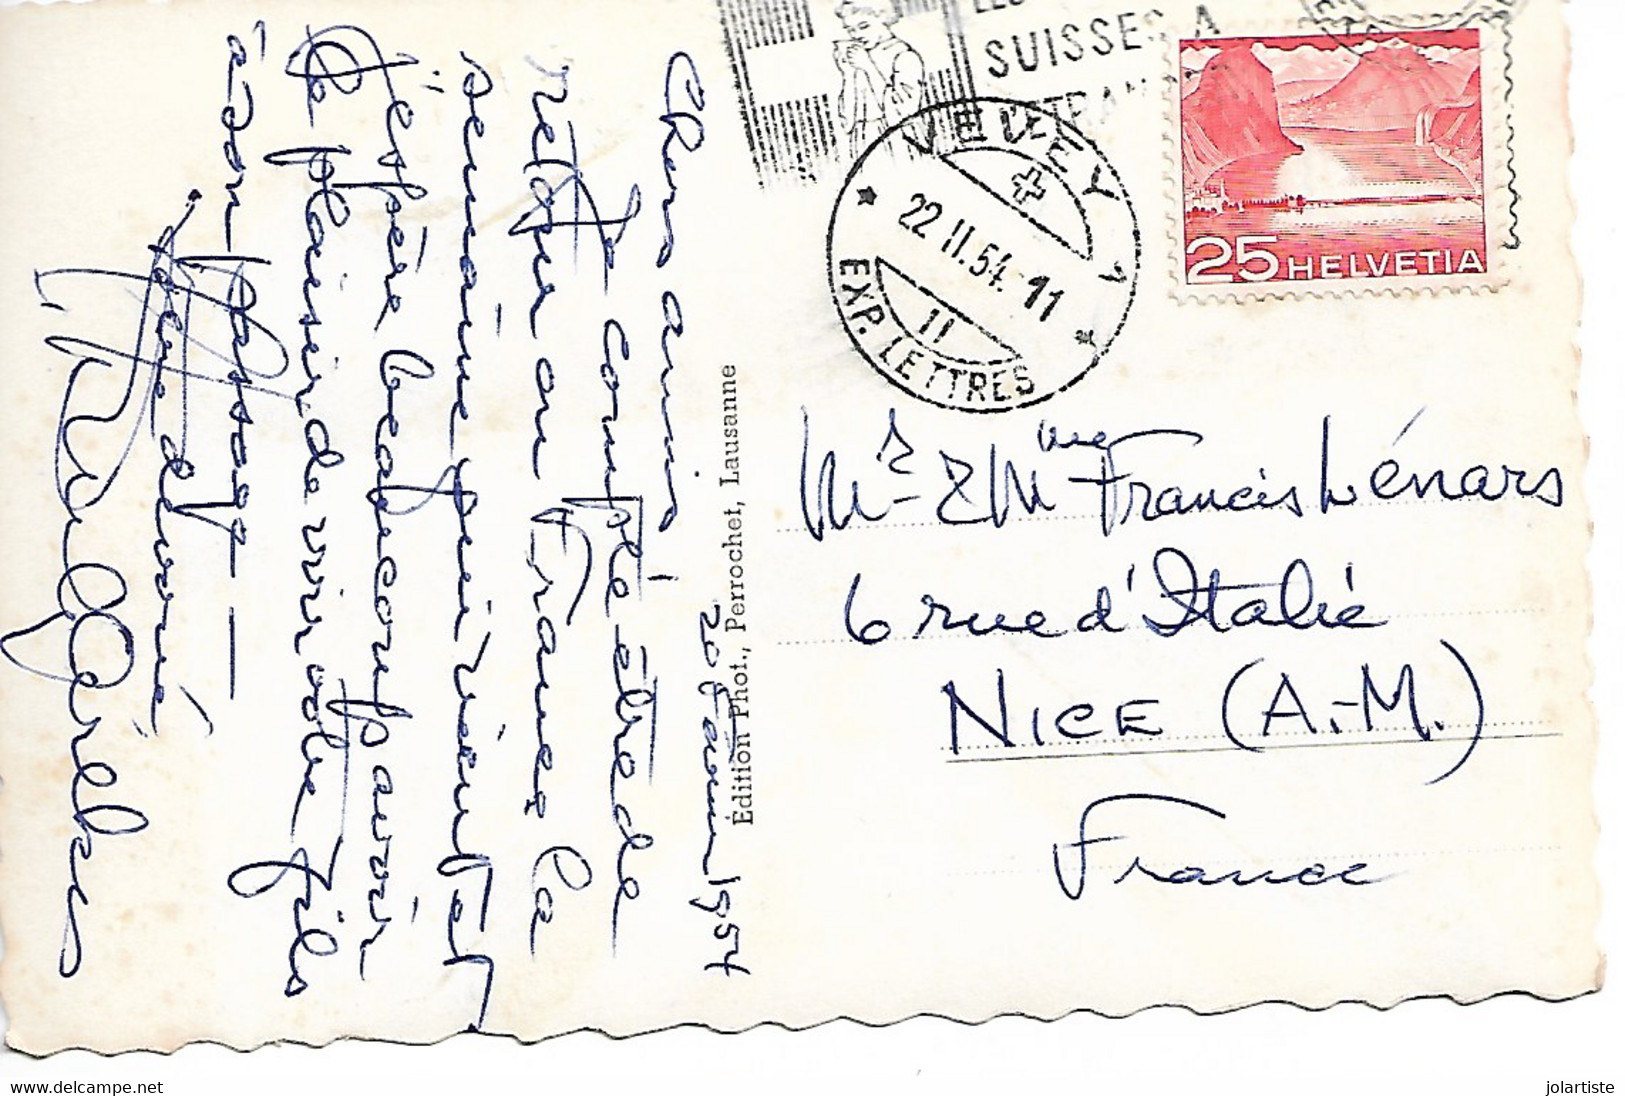 Chers amis
20 Février 1954
Je compte être de
retour en France la
semaine qui vient et
j'espère beaucoup avoir
le plaisir de voir votre fils
à son passage —
Votre dévoué
Édition Phot., Perrochet, Lausanne
SUISSES A
L'ETRAN
VEVEY 1
22.II.54.11
11
EXP. LETTRES
25 HELVETIA
Mr & Mme Francis Lénars
6 rue d'Italie
NICE (A.-M.)
France
www.delcampe.net
jolartiste